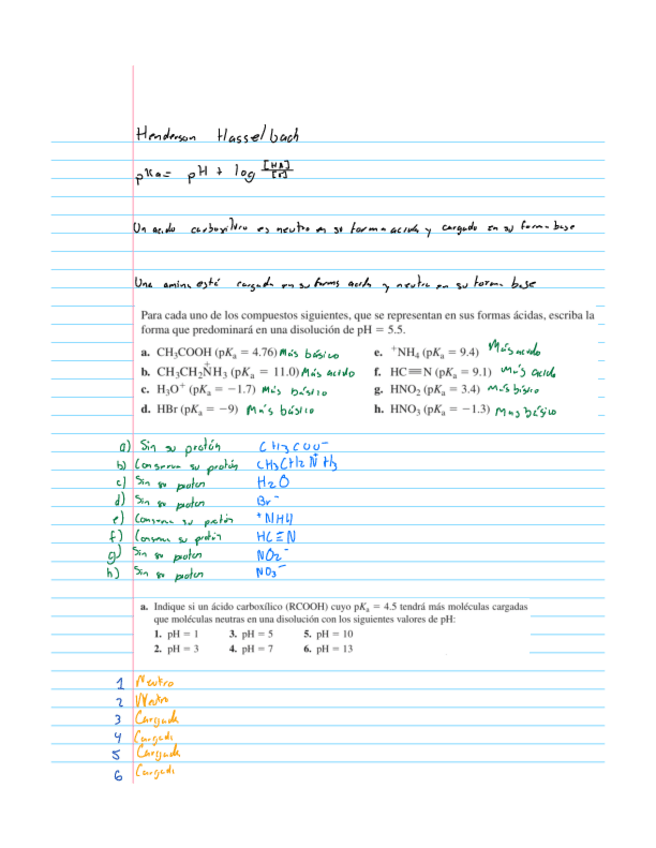 Henderson Hasselbach
pKa= pH + log [HA]/[A⁻]
Un acido carboxilico es neutro en su forma acida y cargado en su forma base
Una amina está cargada en su forma acida y neutra en su forma base
Para cada uno de los compuestos siguientes, que se representan en sus formas ácidas, escriba la
forma que predominará en una disolución de pH = 5.5.
a. CH₃COOH (pKₐ = 4.76) Más básico
e. ⁺NH₄ (pKₐ = 9.4) Más acido
b. CH₃CH₂N⁺H₃ (pKₐ = 11.0) Más acido
f. HC≡N (pKₐ = 9.1) más acido
c. H₃O⁺ (pKₐ = −1.7) Más básico
g. HNO₂ (pKₐ = 3.4) más básico
d. HBr (pKₐ = −9) Más básico
h. HNO₃ (pKₐ = −1.3) Mas básico
a) Sin su protón CH3COO⁻
b) Conserva su protón CH3CH2N⁺H3
c) Sin su proton H2O
d) Sin su proton Br⁻
e) Conserva su protón ⁺NH4
f) Conserva su protón HC≡N
g) Sin su proton NO2⁻
h) Sin su proton NO3⁻
a. Indique si un ácido carboxílico (RCOOH) cuyo pKₐ = 4.5 tendrá más moléculas cargadas
que moléculas neutras en una disolución con los siguientes valores de pH:
1. pH = 1 3. pH = 5 5. pH = 10
2. pH = 3 4. pH = 7 6. pH = 13
1 Neutro
2 Neutro
3 Cargada
4 Cargada
5 Cargada
6 Cargada